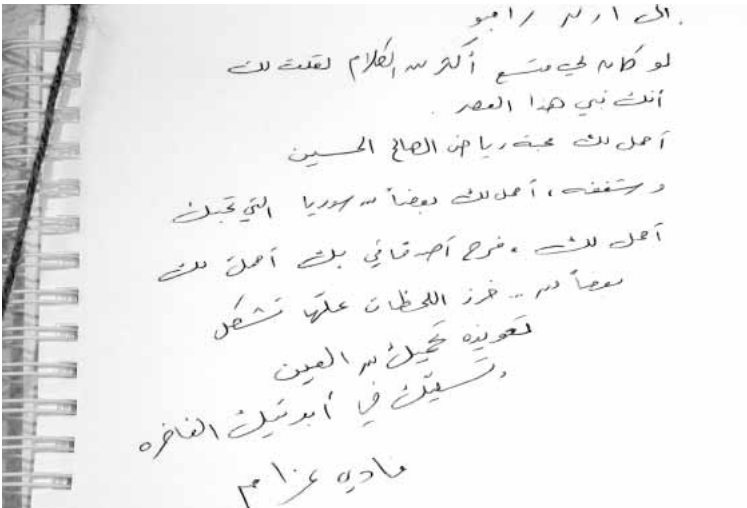 الى آرثر رامبو
لو كان لي متسع أكثر من الكلام لقلت لك
أنك نبي هذا العصر .
أحمل لك محبة رياض الصالح الحسين
وشغفه ، أحمل لك بعضاً من سوريا التي تحبك
أحمل لك فرح أصدقائي بك أحمل لك
بعضاً من .. خرز اللحظات علّها تشكل
تعويذه تحميك من العين
في أبديتك الفاخره
فادي عزام